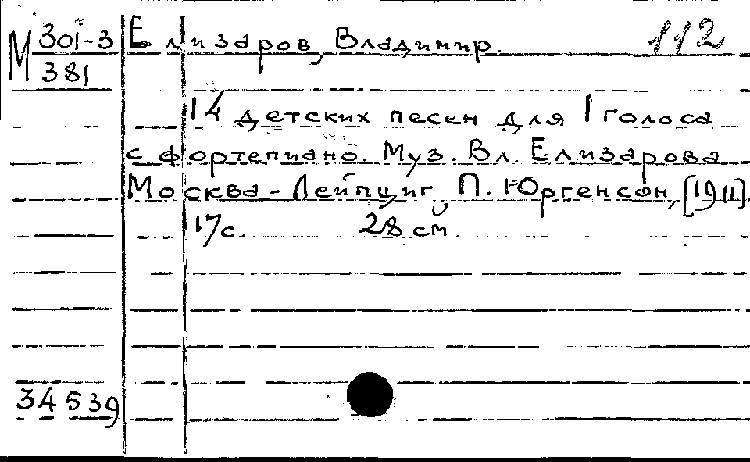 М 301-3 Елизаров, Владимир. 112
381
14 детских песен для 1 голоса
с фортепиано. Муз. Вл. Елизарова
Москва - Лейпциг, П. Юргенсон, [1911].
17 с. 28 см.
34539